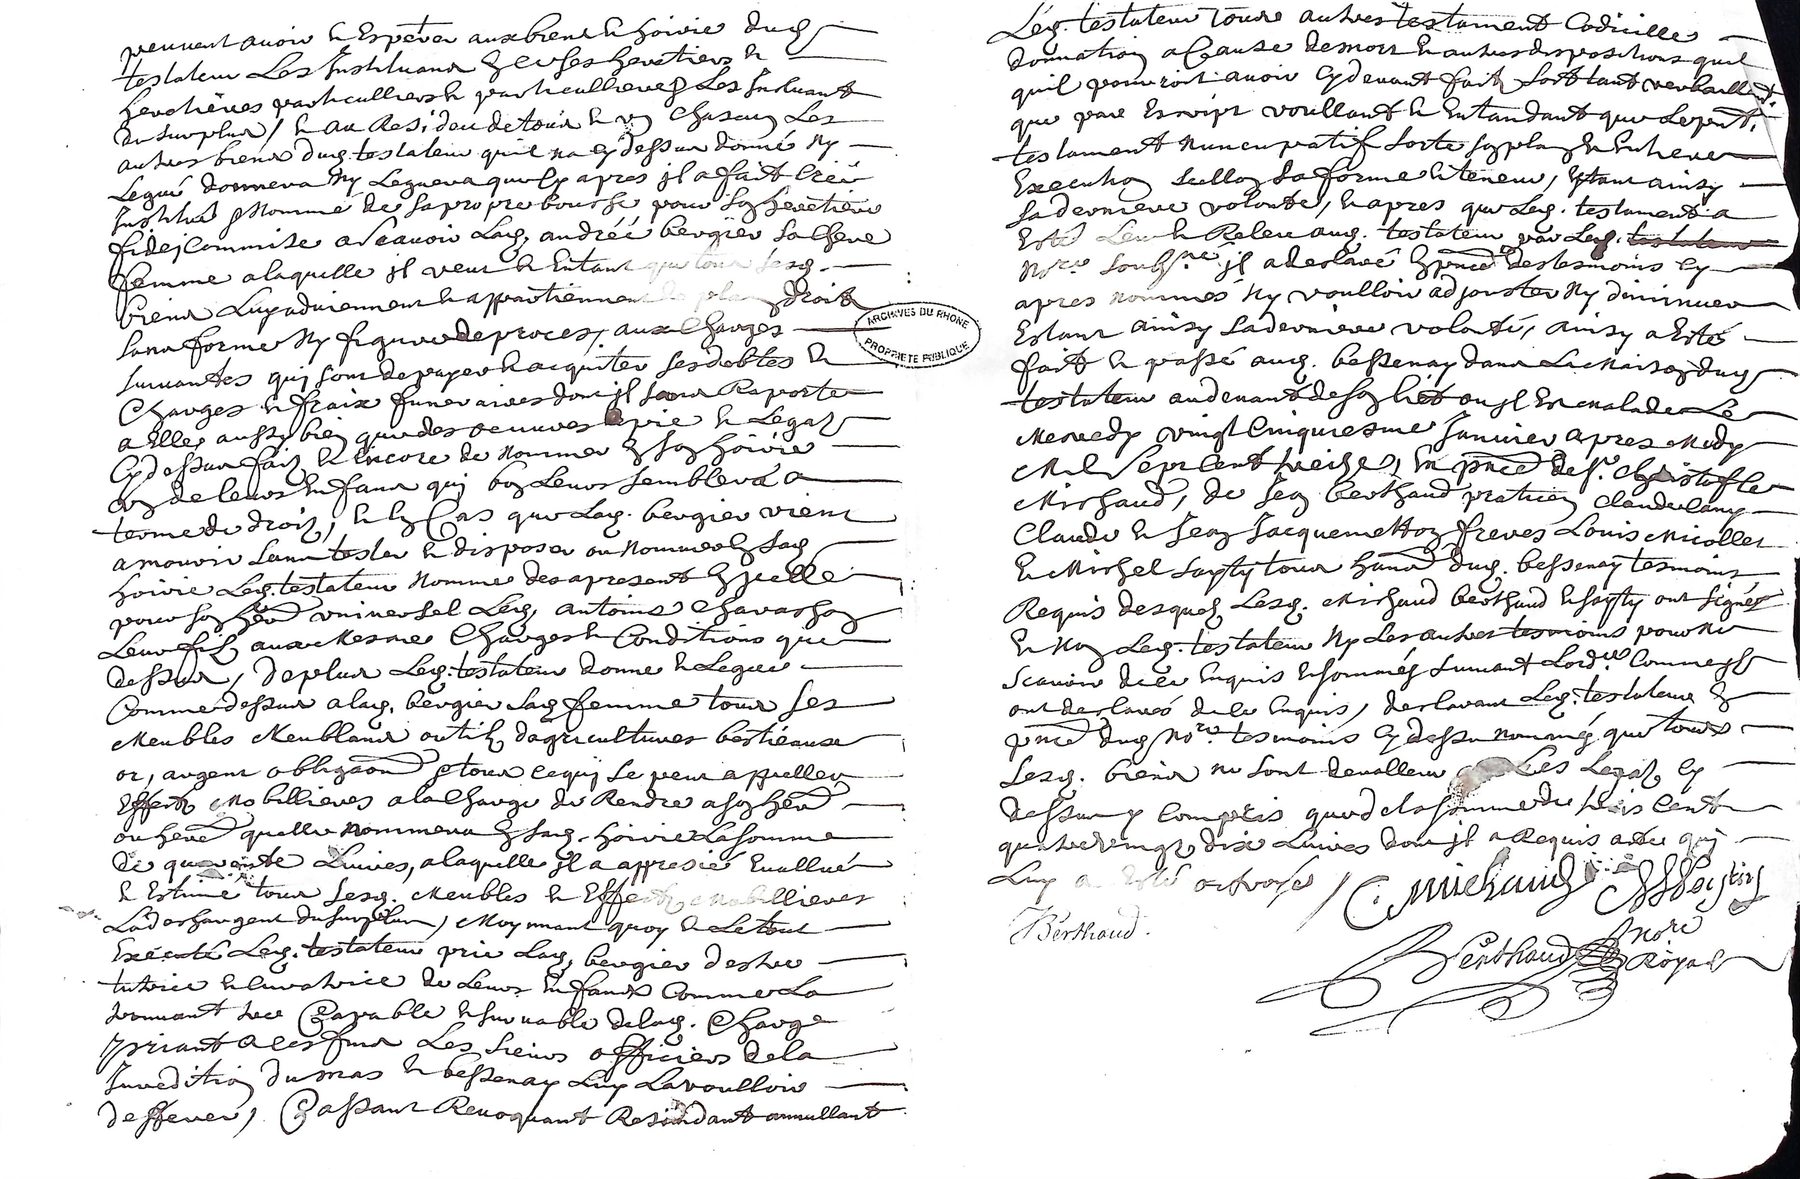 peuvent avoir & Esperer aux biens & hoirie dud
testateur Les Instituant En ce ses heretiers &
heretières particulliers & particullieres Les Incluant
Du surplus / & au Residu de tous & un Chascun Les
autres biens dud. testateur quil na Cy dessus donné Ny
Legué donnera Ny Leguera que Cy apres jl a fait Créé
Institué & Nommé de sa propre bousche pour son heretiere
fideicommise a Scavoir Lad. andrée bergier sa Chere
femme a laquelle jl veut & Entant que tous sesd.
biens Luy adviennent & appartiennent de plain droit
sans forme Ny figure de proces, aux Charges
suivantes quj sont de payer & acquiter ses debtes &
Charges & fraix funeraires dont jl sen Raporte
a Elle, aussy bien que des oeuvres pie & Legatz
Cy dessus faitz & Encore de Nommer En son hoirie
un de leurs Enfans quj bon Leur semblera a
terme de droit, & En Cas que Lad. bergier vient
a mourir sans tester & disposer ou Nommer En sad
hoirie Led. testateur Nomme des apresent En jcelle
pour son her universel Led. antoine Chavasson
Leur filz aux Mesmes Charges & Conditions que
dessus, de plus Led. testateur donne & Legue
Comme dessus a lad. bergier sad femme tous ses
Meubles Meublans outilz dagricultures bestieaux
or, argent obliga͠on & tous ce quj se peut appeller
Effectz Mobillieres a la Charge de Rendre a son her
ou here quelle Nommera En sad. hoirie La somme
de quarente Livres, a laquelle jl a appresié Evallué
& Estimé tous sesd. Meubles & Effectz Mobillieres
La deschargent du surplus, Moyennant quoy & Le tout
Exécuté Led. testateur prie Lad. bergier destre
tutrice & curatrice de Leurs Enfans Comme La
trouvant tres Capable & survable de lad. Charge
priant a ces fins Les Sieurs officiers de la
Jurediction du mas & bessenay Luy La voulloir
defferer, Cassant Revoquant Resindant annullant
Led. testateur tous autres testament Codicille
donnation a Cause de mort & autres dispositions quil
quil pourroit avoir Cy devant fait soit tant verballemt.
que par Escript voullant & Entandant que Le pnt.
testament Nuncupatif sorte son plain & Entiere
Execution sellon sa forme & teneur, Estant ainsy
sa derniere volonté, & apres que Led. testament a
Esté Leu & Releu aud. testateur par Led.
Nore soubsne jl a desclaré En pnce des tesmoins Cy
apres nommés Ny voulloir adjouster Ny diminuer
Estant ainsy sa derniere volonté, ainsy a Esté
fait & passé aud. bessenay dans La Maison dud
testateur au devant de son lict ou jl Est malade Le
Mercredy vingt Cinquiesme Janvier apres Midy
Mil Sept Cent treize, En pnce de sr. Christofle
Mischaud, de Jean berthaud praticien Claude Lany
Claude & Jean Jacquemetton freres Louis Micollet
& Mischel sayty tous hans dud. bessenay tesmoins
Requis desquels Lesd. Mischaud berthaud & sayty ont signés
& Non Led. testateur Ny Les autres tesmoins pour Ne
scavoir de ce Enquis & sommés suivant Lordce Comme jls
ont desclarés de ce Enquis, desclarant Led. testateur En
pnce dud Nore. tesmoins Cy dessus nommés que tous
sesd. biens ne sont de valleur Les Legatz Cy
dessus y Compris que de la somme de trois Cent
quatre vingtz dix Livres dont jl a Requis acte quj
Luy a Esté octroyé / C. Michaud
Berthaud.
Berthaud nore
Royal
ARCHIVES DU RHONE
PROPRIETE PUBLIQUE